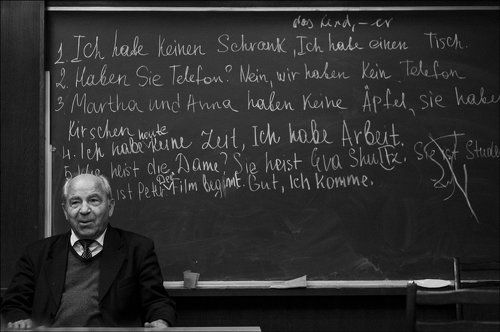 das Kind, – er
1. Ich habe keinen Schrank, Ich habe einen Tisch.
2. Haben Sie Telefon? Nein, wir haben kein Telefon
3 Martha und Anna haben keine Äpfel, sie haben
Kirschen heute
4. Ich habe keine Zeit, Ich habe Arbeit.
5. Wie heist die Dame? Sie heist Eva Shultz. Sie ist Stude
ist Peter Der Film beginnt. Gut, Ich komme.